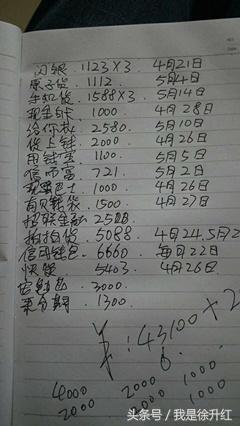 闪银 1123×3 4月21日
原子贷 1112 5月4日
手机贷 1588×3 5月14日
现金白卡 1000 4月28日
给你花 2580 5月10日
贷上钱 2000 4月26日
用钱宝 1100 5月5日
信而富 721 5月2日
巴士 1000 4月26日
有贝钱袋 1500 4月27日
招联金融
拍拍贷 5088 4月24.5月2
信用钱包 6660 每月22日
快贷 5403 4月26日
3000
来分期 1300
¥:43100+2
4000 2000 1000
2000 2000 1000
头条号 / 我是徐升红